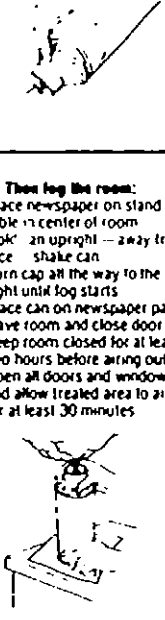 Then fog the room:
ace newspaper on stand
ble in center of room
an upright — away
ce shake can
urn cap all the way to the
ght until fog starts
ace can on newspaper
ave room and close door
eep room closed for at
o hours before airing out
pen all doors and window
d allow treated area to
r at least 30 minutes